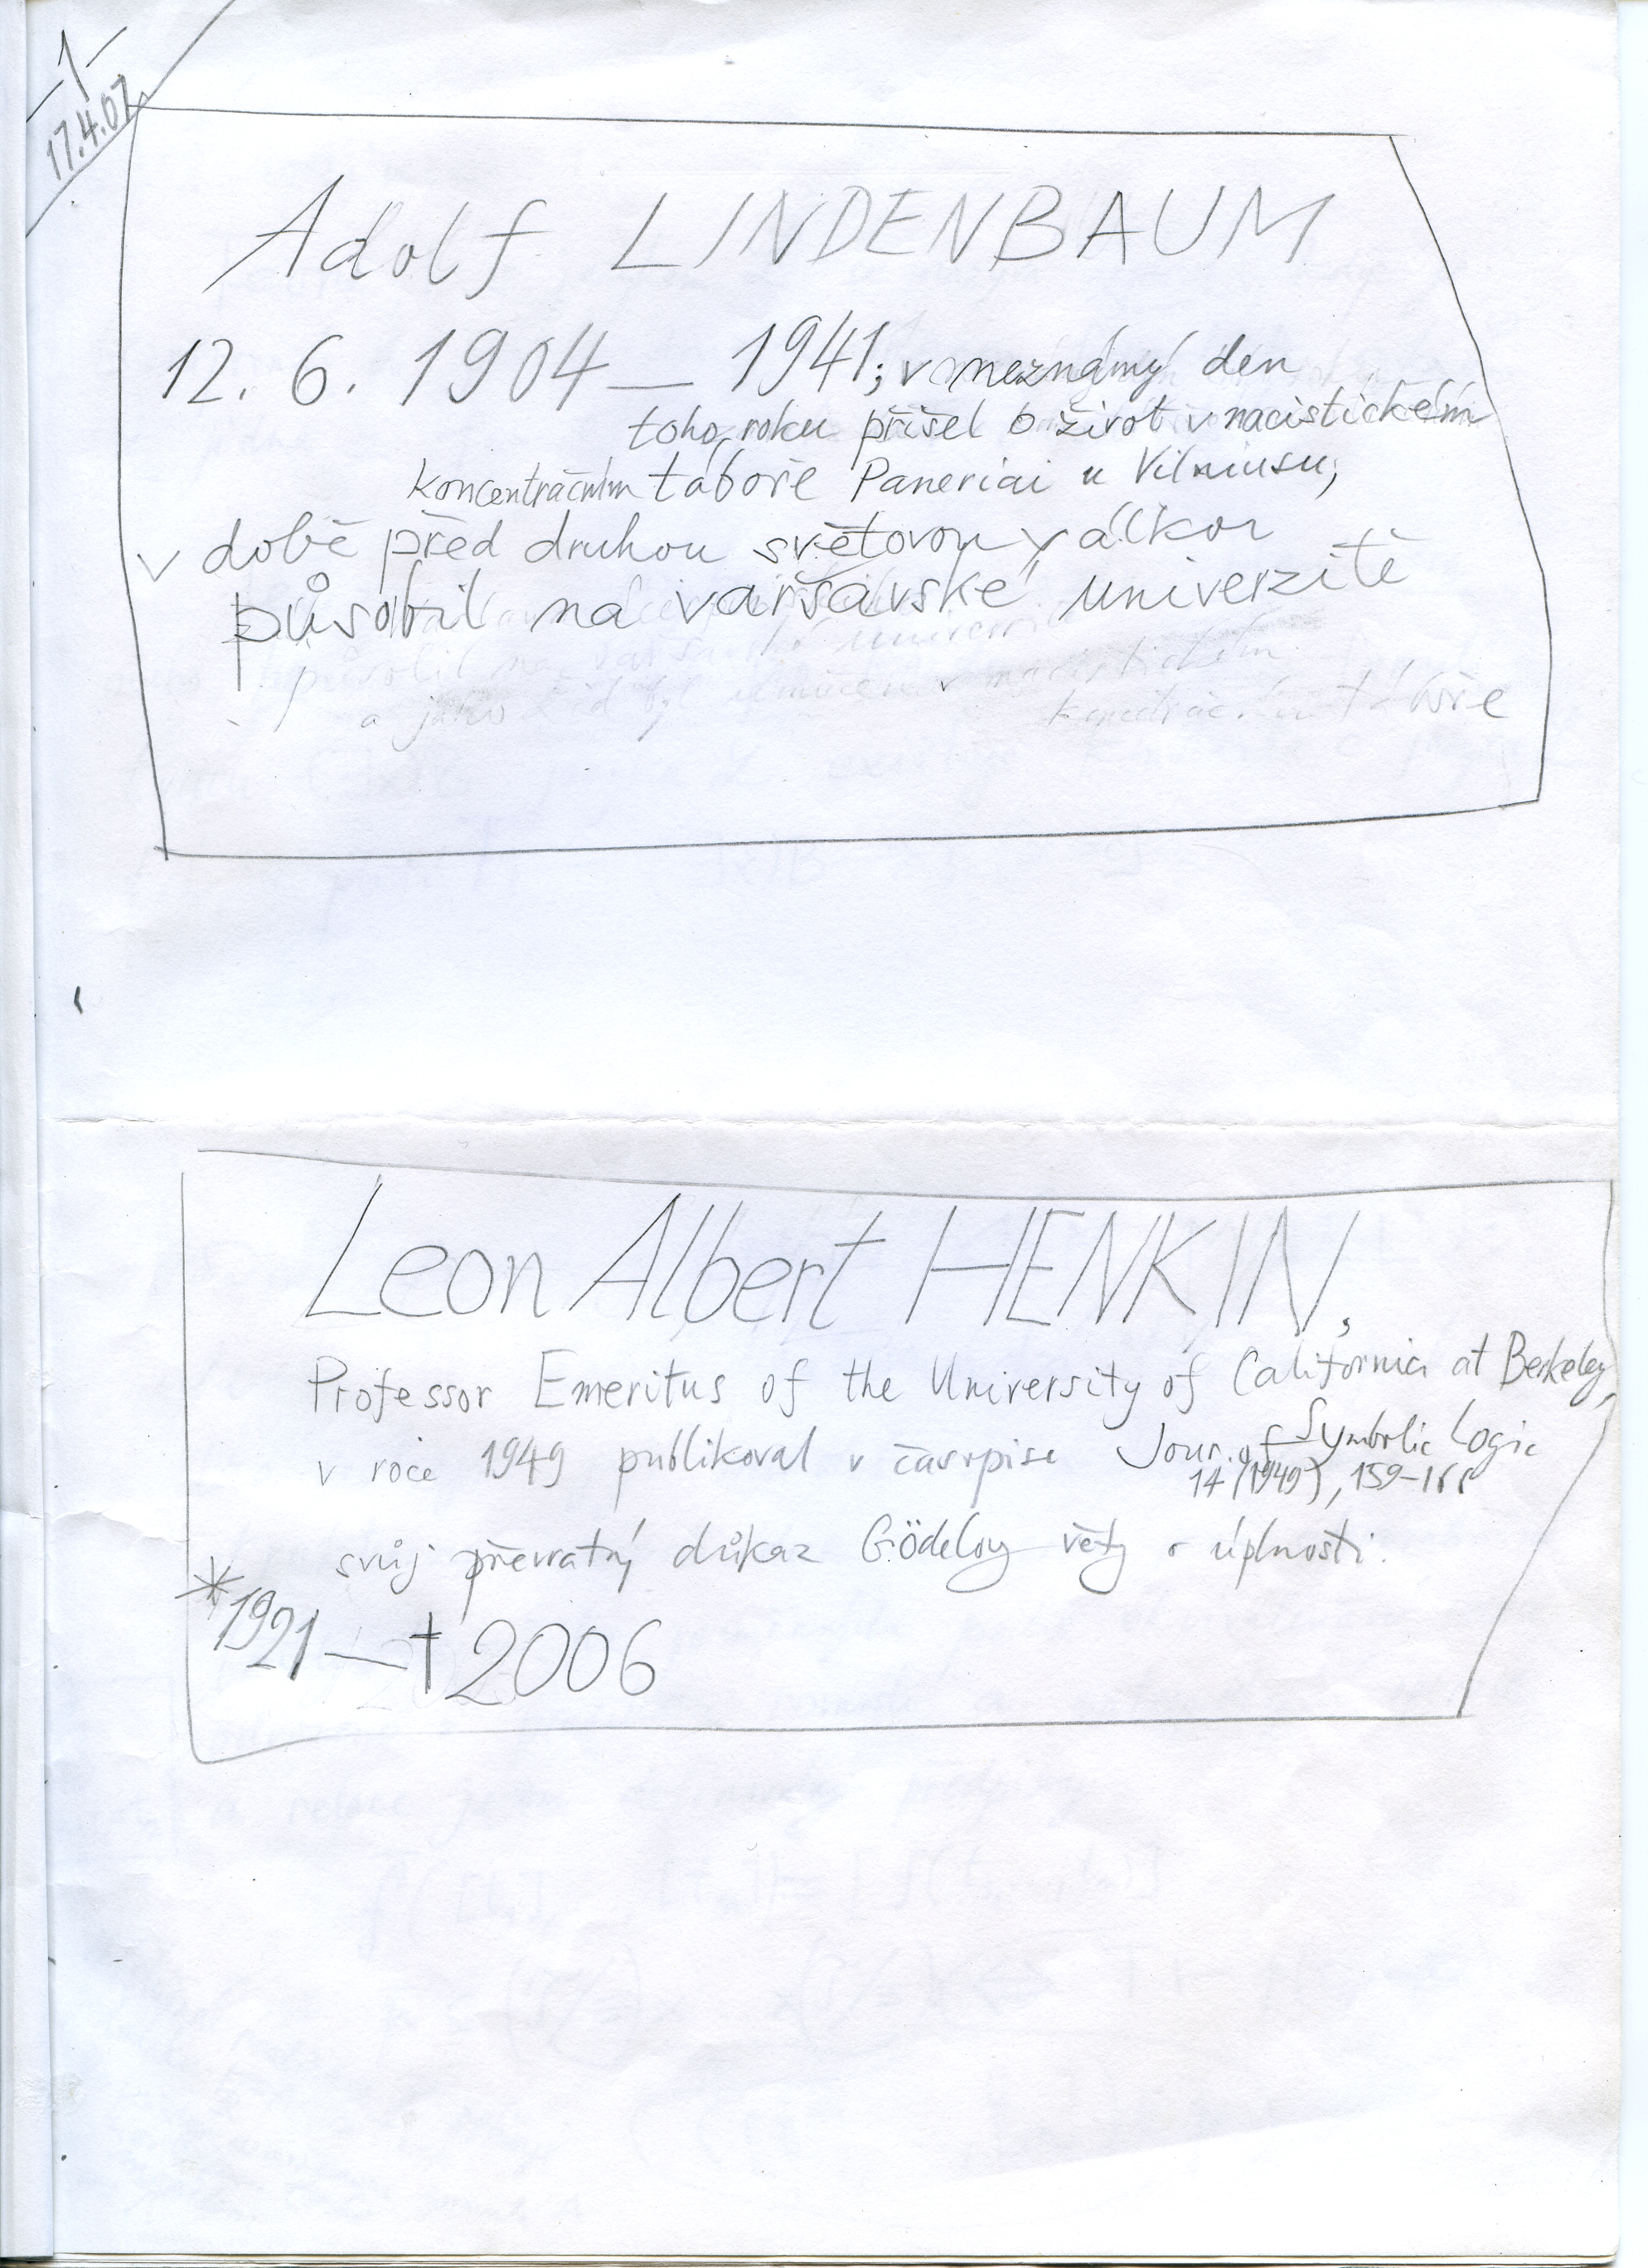 -1-
17.4.07
Adolf LINDENBAUM
12. 6. 1904 — 1941; v neznámý den
toho roku přišel o život v nacistickém
koncentračním táboře Paneriai u Vilniusu;
v době před druhou světovou válkou
působil na varšavské univerzitě
působil na varšavské univerzitě
a jako Žid byl umučen v nacistickém
koncentračním táboře
Leon Albert HENKIN,
Professor Emeritus of the University of California at Berkeley,
v roce 1949 publikoval v časopise Jour. of Symbolic Logic
14 (1949), 159-166
svůj převratný důkaz Gödelovy věty o úplnosti.
*1921 — † 2006